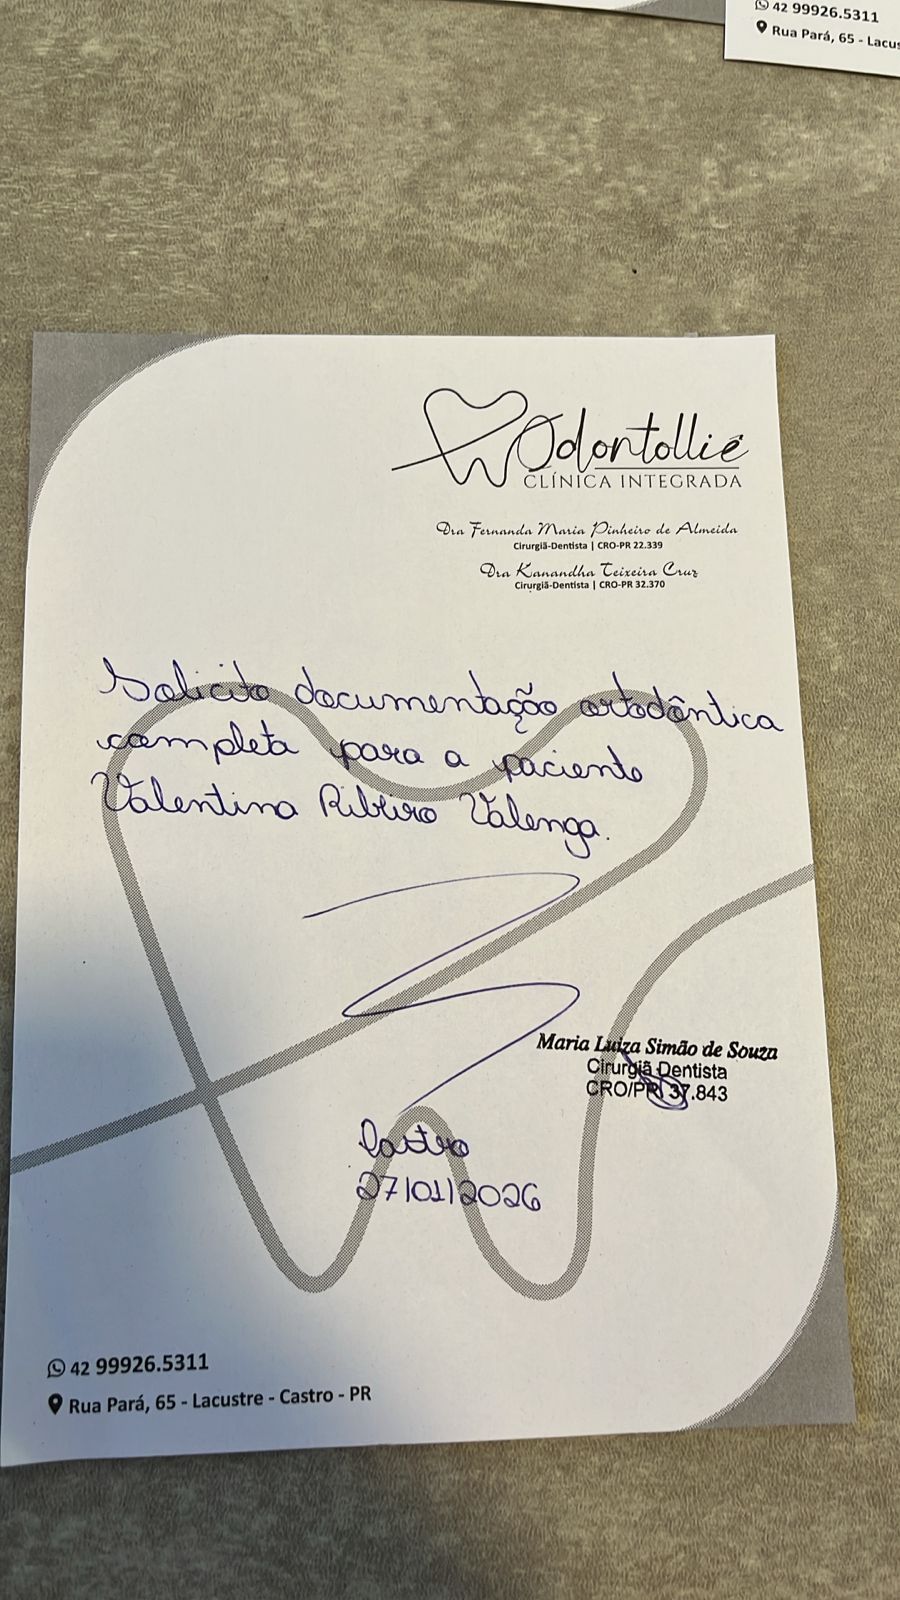 42 99926.5311
Rua Pará, 65 - Lacus
Odontolliê
CLÍNICA INTEGRADA
Dra Fernanda Maria Pinheiro de Almeida
Cirurgiã-Dentista | CRO-PR 22.339
Dra Kanandha Teixeira Cruz
Cirurgiã-Dentista | CRO-PR 32.370
Solicito documentação ortodôntica
completa para a paciente
Valentina Ribeiro Valenga.
Maria Luiza Simão de Souza
Cirurgiã Dentista
CRO/PR 37.843
Castro
27/01/2026
42 99926.5311
Rua Pará, 65 - Lacustre - Castro - PR